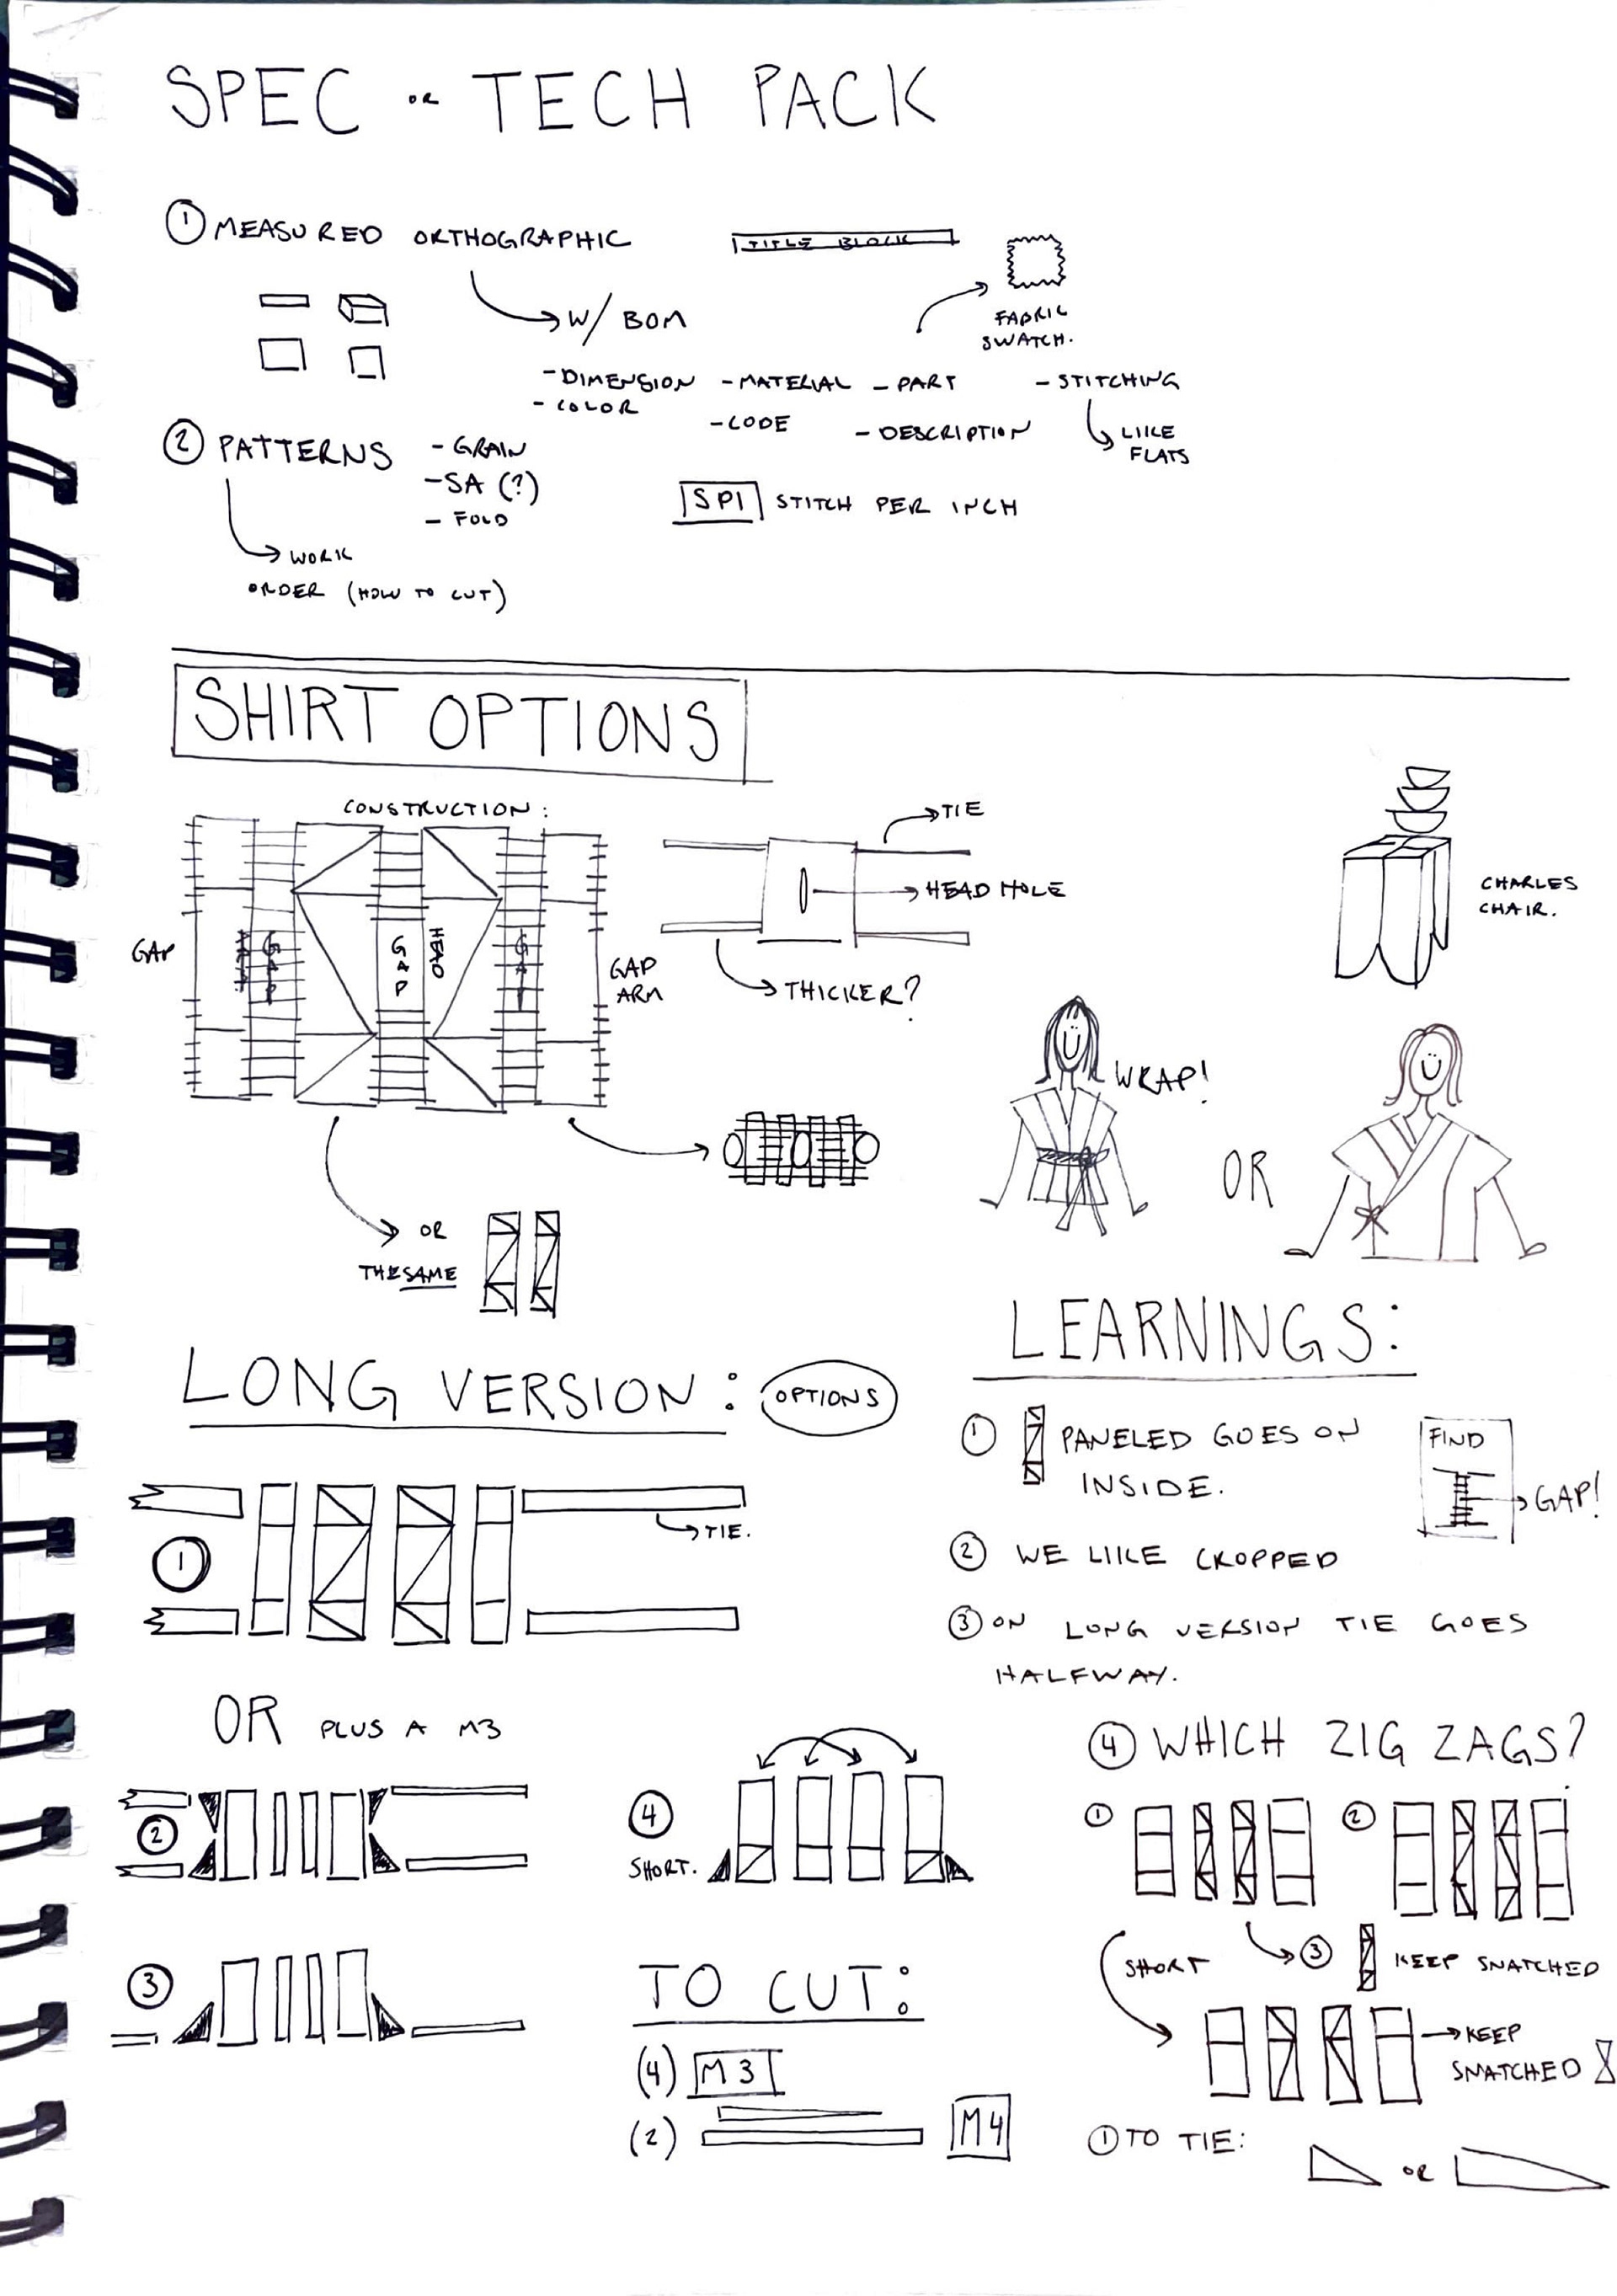 SPEC OR TECH PACK
① MEASURED ORTHOGRAPHIC
TITLE BLOCK
FABRIC
SWATCH.
W/ BOM
- DIMENSION - MATERIAL - PART - STITCHING
- COLOR
- CODE - DESCRIPTION
LIKE
FLATS
② PATTERNS
- GRAIN
- SA (?)
- FOLD
SPI STITCH PER INCH
WORK
ORDER (HOW TO CUT)
SHIRT OPTIONS
CONSTRUCTION:
GAP
GAP
GAP
HEAD
GAP
GAP
ARM
TIE
HEAD HOLE
THICKER?
CHARLES
CHAIR.
WRAP!
OR
OR
THE SAME
LONG VERSION: OPTIONS
①
TIE.
OR PLUS A M3
②
③
④
SHORT.
TO CUT:
(4) M3
(2)
M4
LEARNINGS:
① PANELED GOES ON
INSIDE.
FIND
GAP!
② WE LIKE CROPPED
③ ON LONG VERSION TIE GOES
HALFWAY.
④ WHICH ZIG ZAGS?
① ②
SHORT ③ KEEP SNATCHED
KEEP
SNATCHED
① TO TIE:
OR